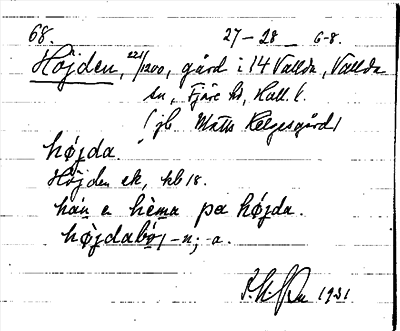 68. 27-28 6-8.
Höjden, 221/1200, gård i 14 Vallda, Vallda
sn, Fjäre hd, Hall. l.
(jb. Matts Helgesgård)
højda.
Höjden ek, kb 18.
hán e hèma pa højda.
højdabǿj -n; -a.
1931